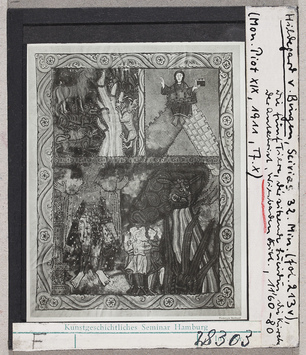 Hildegard v. Bingen, Scivias 32. Min. (fol. 213v)
die fünf Tiere, der sitzende
Wiesbaden 1160-80
(Mon. Piot XIX, 1911, Tf. X)
Kunstgeschichtliches Seminar Hamburg
28303